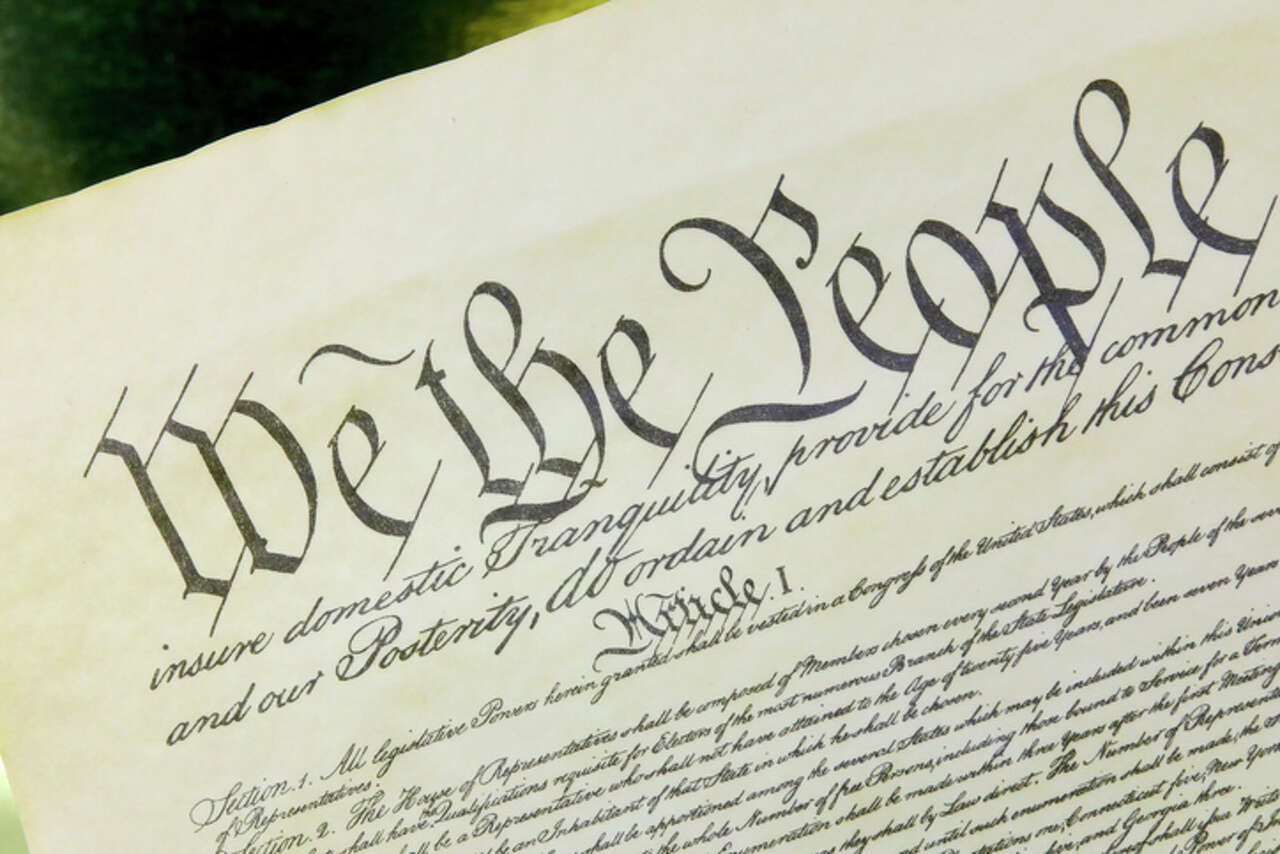 We the People
insure domestic Tranquility, provide for the common
and our Posterity, do ordain and establish this Cons
Article. I.
Section. 1. All legislative Powers herein granted shall be vested in a Congress of the United States, which shall consist of
of Representatives.
Section. 2. The House of Representatives shall be composed of Members chosen every second Year by the People of the seve
shall have Qualifications requisite for Electors of the most numerous Branch of the State Legislature.
shall be a Representative who shall not have attained to the Age of twenty five Years, and been seven Years
be an Inhabitant of that State in which he shall be chosen.
shall be apportioned among the several States which may be included within this Union
the whole Number of free Persons, including those bound to Service for a Term
Enumeration shall be made within three Years after the first Meeting
they shall by Law direct. The Number of Represent
and until such enumeration shall be made, the
one, Connecticut five, New York
and Georgia three.